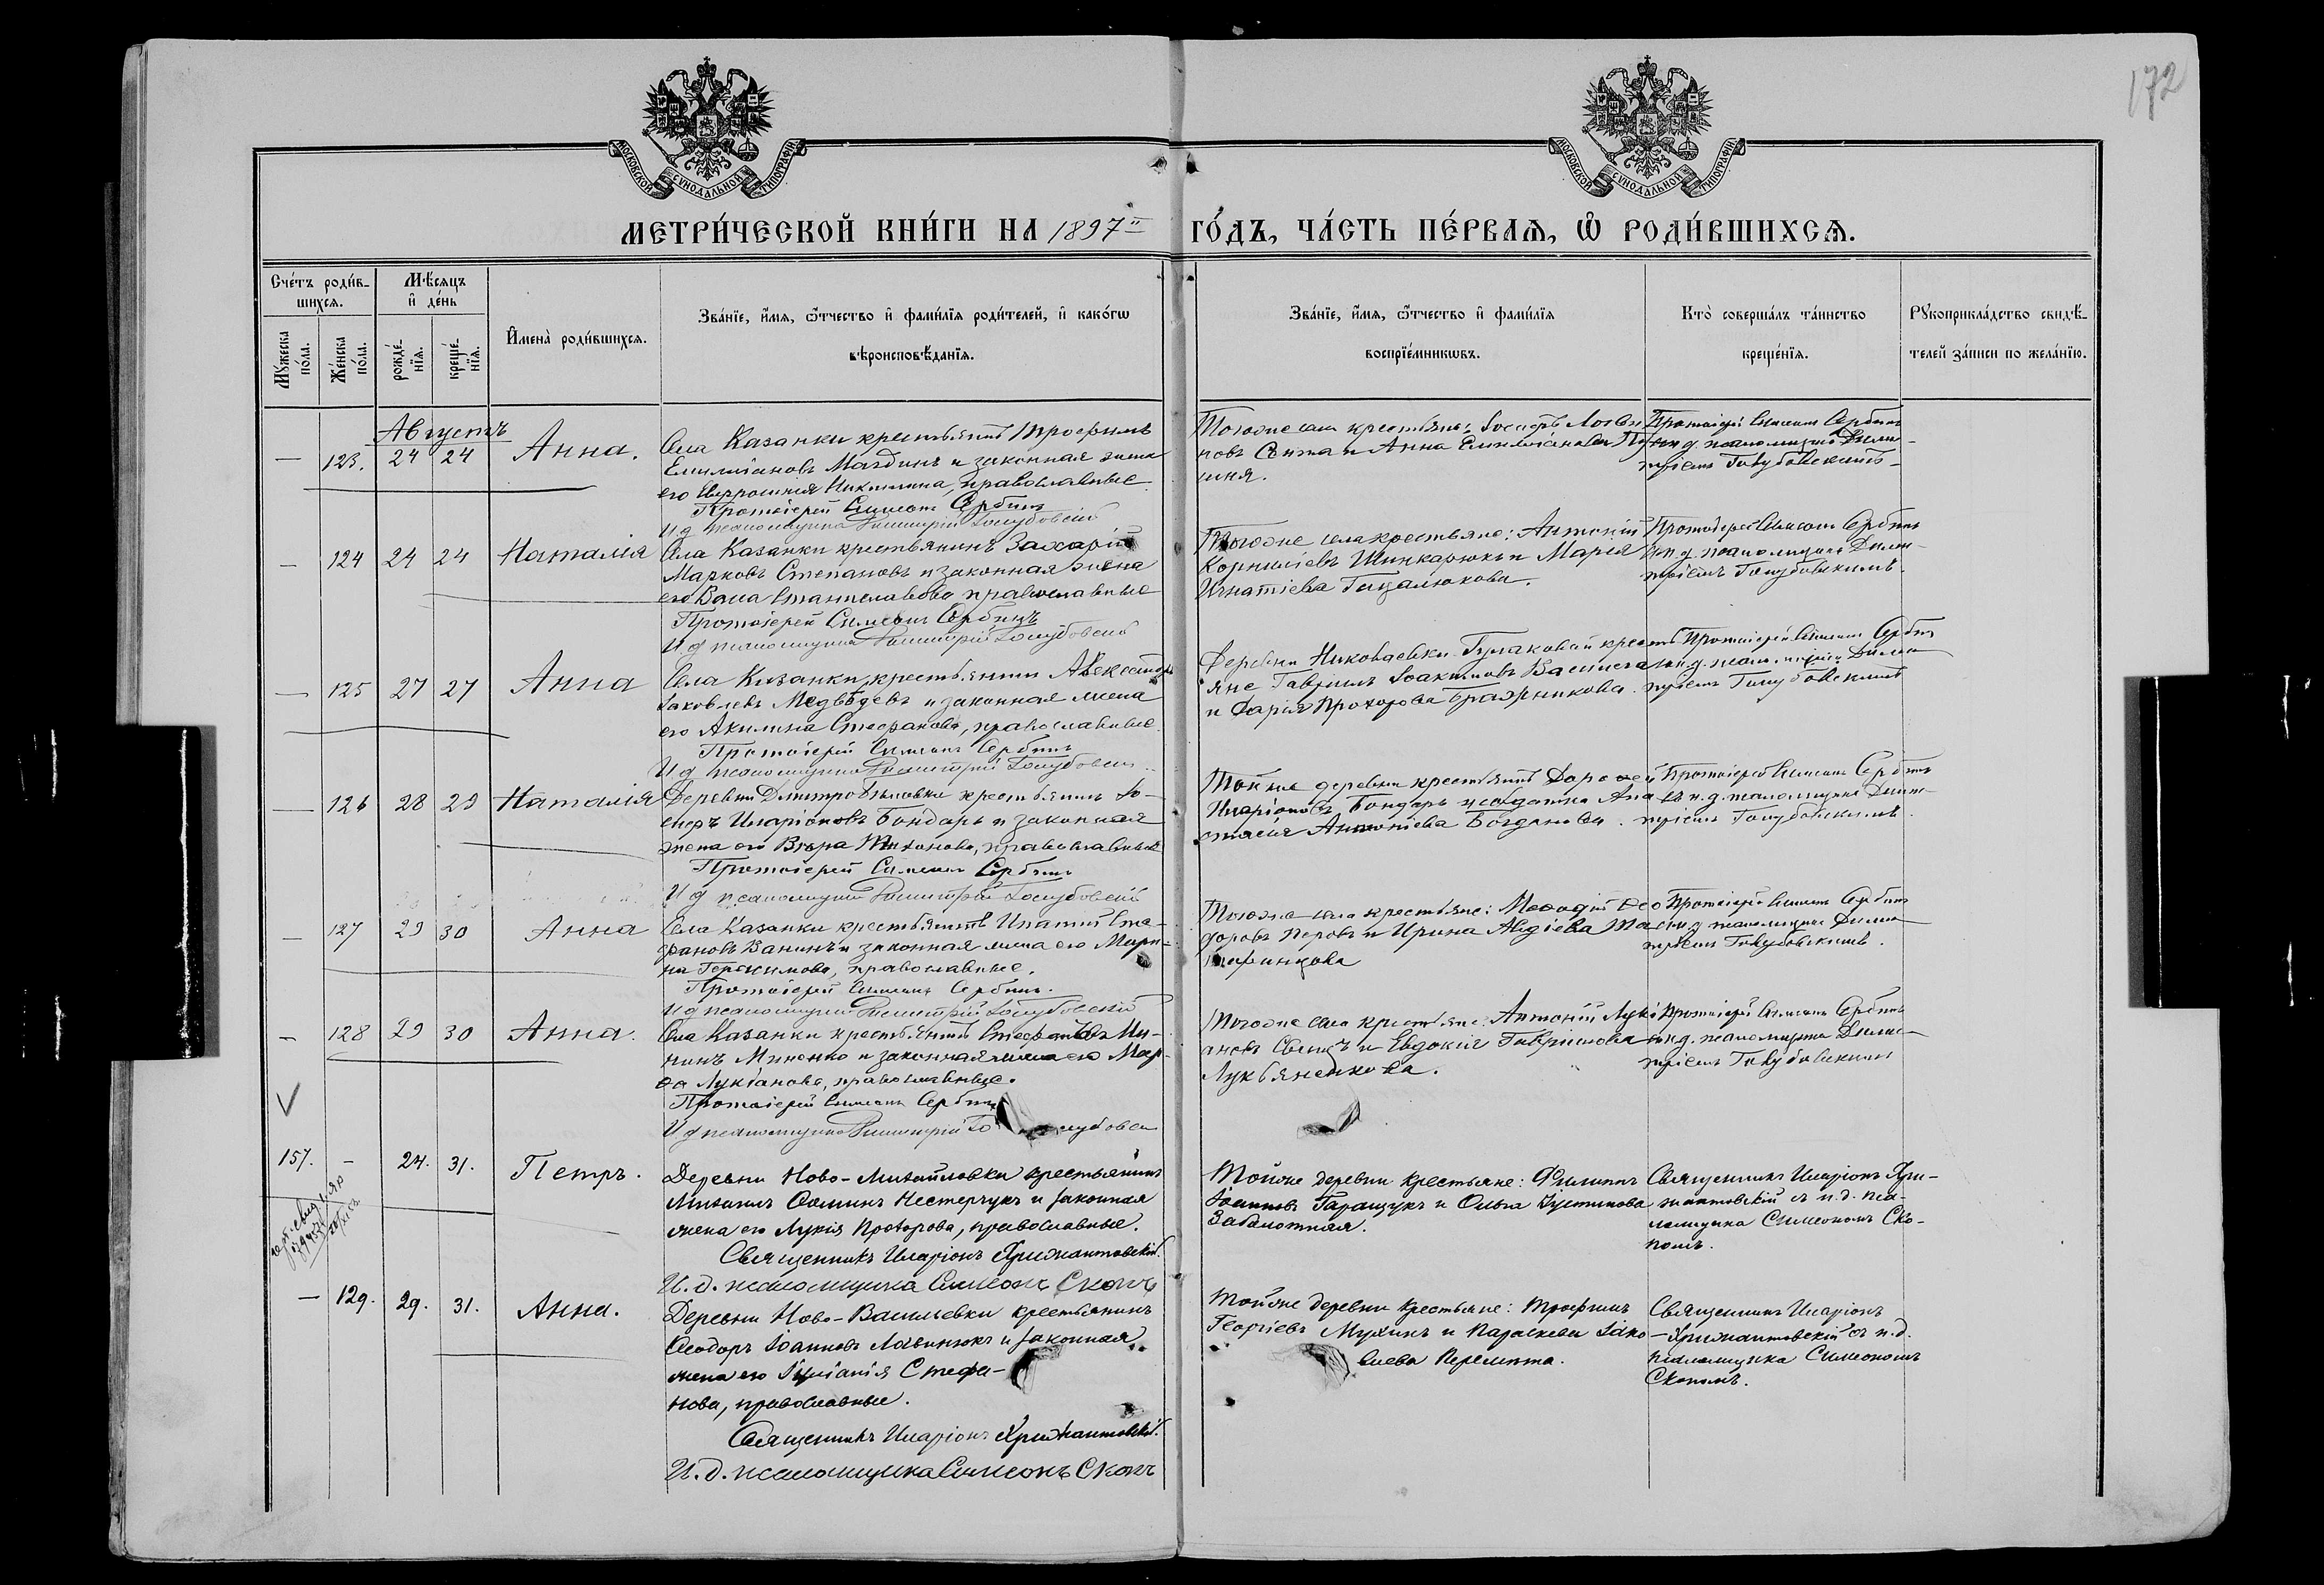 172
МОСКОВСКОЙ СѴНОДАЛЬНОЙ ТИПОГРАФІИ
МОСКОВСКОЙ СѴНОДАЛЬНОЙ ТИПОГРАФІИ
МЕТРИ́ЧЕСКОЙ КНИ́ГИ НА 1897й ГО́ДЪ, ЧА́СТЬ ПЕ́РВАѦ, Ѡ҆ РОДИ́ВШИХСѦ.
Сче́тъ роди́в-
шихсѧ.
Мꙋ́жеска
по́ла.
Же́нска
по́ла.
Мѣ́сѧцъ
и҆ де́нь
рожде́-
нїѧ.
креще́-
нїѧ.
И҆мена̀ роди́вшихсѧ.
Зва́нїе, и҆́мѧ, ѻ҆́тчество и҆ фами́лїѧ роди́телей, и҆ како́гѡ
вѣроисповѣ́данїѧ.
Зва́нїе, и҆́мѧ, ѻ҆́тчество и҆ фами́лїѧ
воспрїе́мникѡвъ.
Кто̀ соверша́лъ та́инство
креще́нїѧ.
Рꙋкоприкла́дство свидѣ́-
телей за́писи по жела́нїю.
Августъ
— 123. 24 24 Анна.
Села Казанки крестьянинъ Трофимъ
Емиліановъ Магдинъ и законная жена
его Евфросинія Никитина, православные
Протоіерей Симеонъ Сербинъ
И д псаломщика Димитрій Голубовскій
Тогоже села крестьяне: Іосифъ Логви-
новъ Сѣпта и Анна Емиліанова
шня.
Протоіерей Симеонъ Сербинъ
съ и.д. псаломщика Дими-
тріемъ Голубовскимъ
— 124 24 24 Наталія
Села Казанки крестьянинъ Захарій
Марковъ Степановъ и законная жена
его Васса Станиславова православные
Протоіерей Симеонъ Сербинъ
И д псаломщика Димитрій Голубовскій
Тогоже села крестьяне: Антоній
Корниліевъ Шинкарюкъ и Марія
Игнатіева Гацалюкова.
Протоіерей Симеонъ Сербинъ
съ и.д. псаломщика Дими-
тріемъ Голубовскимъ
— 125 27 27 Анна
Села Казанки крестьянинъ Александръ
Іаковлевъ Медвѣдевъ и законная жена
его Акилина Стефанова, православные.
Протоіерей Симеонъ Сербинъ
И д псаломщика Димитрій Голубовскій
Деревни Николаевки Гулаковой кресть-
яне Гавріилъ Іоакимовъ
и Дарія Прохорова Бражникова.
Протоіерей Симеонъ Сербинъ
съ и.д. псаломщика Дими-
тріемъ Голубовскимъ
— 126 28 29 Наталія
Деревни Димитро-Бѣловки крестьянинъ Іо-
сифъ Иларіоновъ Бондарь и законная
жена его Вѣра Тихонова, православные
Протоіерей Симеонъ Сербинъ
И д псаломщика Димитрій Голубовскій
Той же деревни крестьянинъ Дорофей
Иларіоновъ Бондарь и солдатка Ана-
стасія Антоніева Богданова.
Протоіерей Симеонъ Сербинъ
съ и.д. псаломщика Дими-
тріемъ Голубовскимъ.
— 127 29 30 Анна
Села Казанки крестьянинъ Игнатій Сте-
фановъ Ванинъ и законная жена его Мари-
на Герасимова, православные.
Протоіерей Симеонъ Сербинъ.
И д псаломщика Димитрій Голубовскій
Тогоже села крестьяне: Меѳодій Ѳео-
доровъ Перовъ и Ирина Авдіева
Протоіерей Симеонъ Сербинъ
съ и.д. псаломщика Дими-
тріемъ Голубовскимъ.
— 128 29 30 Анна.
Села Казанки крестьянинъ Стефанъ Ми-
нинъ Миненко и законная жена его Мар-
ѳа Лукіанова, православные.
Протоіерей Симеонъ Сербинъ
И д псаломщика Димитрій Голубовскій
Тогоже села крестьяне: Антоній Лукі-
ановъ Свецъ и Евдокія Гавріилова
Лукьяненкова.
Протоіерей Симеонъ Сербинъ
съ и.д. псаломщика Дими-
тріемъ Голубовскимъ
157. — 24. 31. Петръ.
Деревни Ново-Михайловки крестьянинъ
Михаилъ Ѳоминъ Нестерчукъ и законная
жена его Лукія Прохорова, православные.
Священникъ Иларіонъ Хрижантовскій.
И. д. псаломщика Симеонъ Скопъ
Тойже деревни крестьяне: Филиппъ
Іоанновъ Гаращукъ и Ольга Іустинова
Заболотная.
Священникъ Иларіонъ Хри-
жантовскій съ и.д. пса-
ломщика Симеономъ Ско-
помъ.
— 129. 29. 31. Анна.
Деревни Ново-Васильевки крестьянинъ
Ѳеодоръ Іоанновъ Лавинюкъ и законная
жена его Іуліанія Стефа-
нова, православные.
Священникъ Иларіонъ Хрижантовскій.
И. д. псаломщика Симеонъ Скопъ
Тойже деревни крестьяне: Трофимъ
Георгіевъ Мухинъ и Параскева Іако-
влева Перепита.
Священникъ Иларіонъ
Хрижантовскій съ и.д.
псаломщика Симеономъ
Скопомъ.